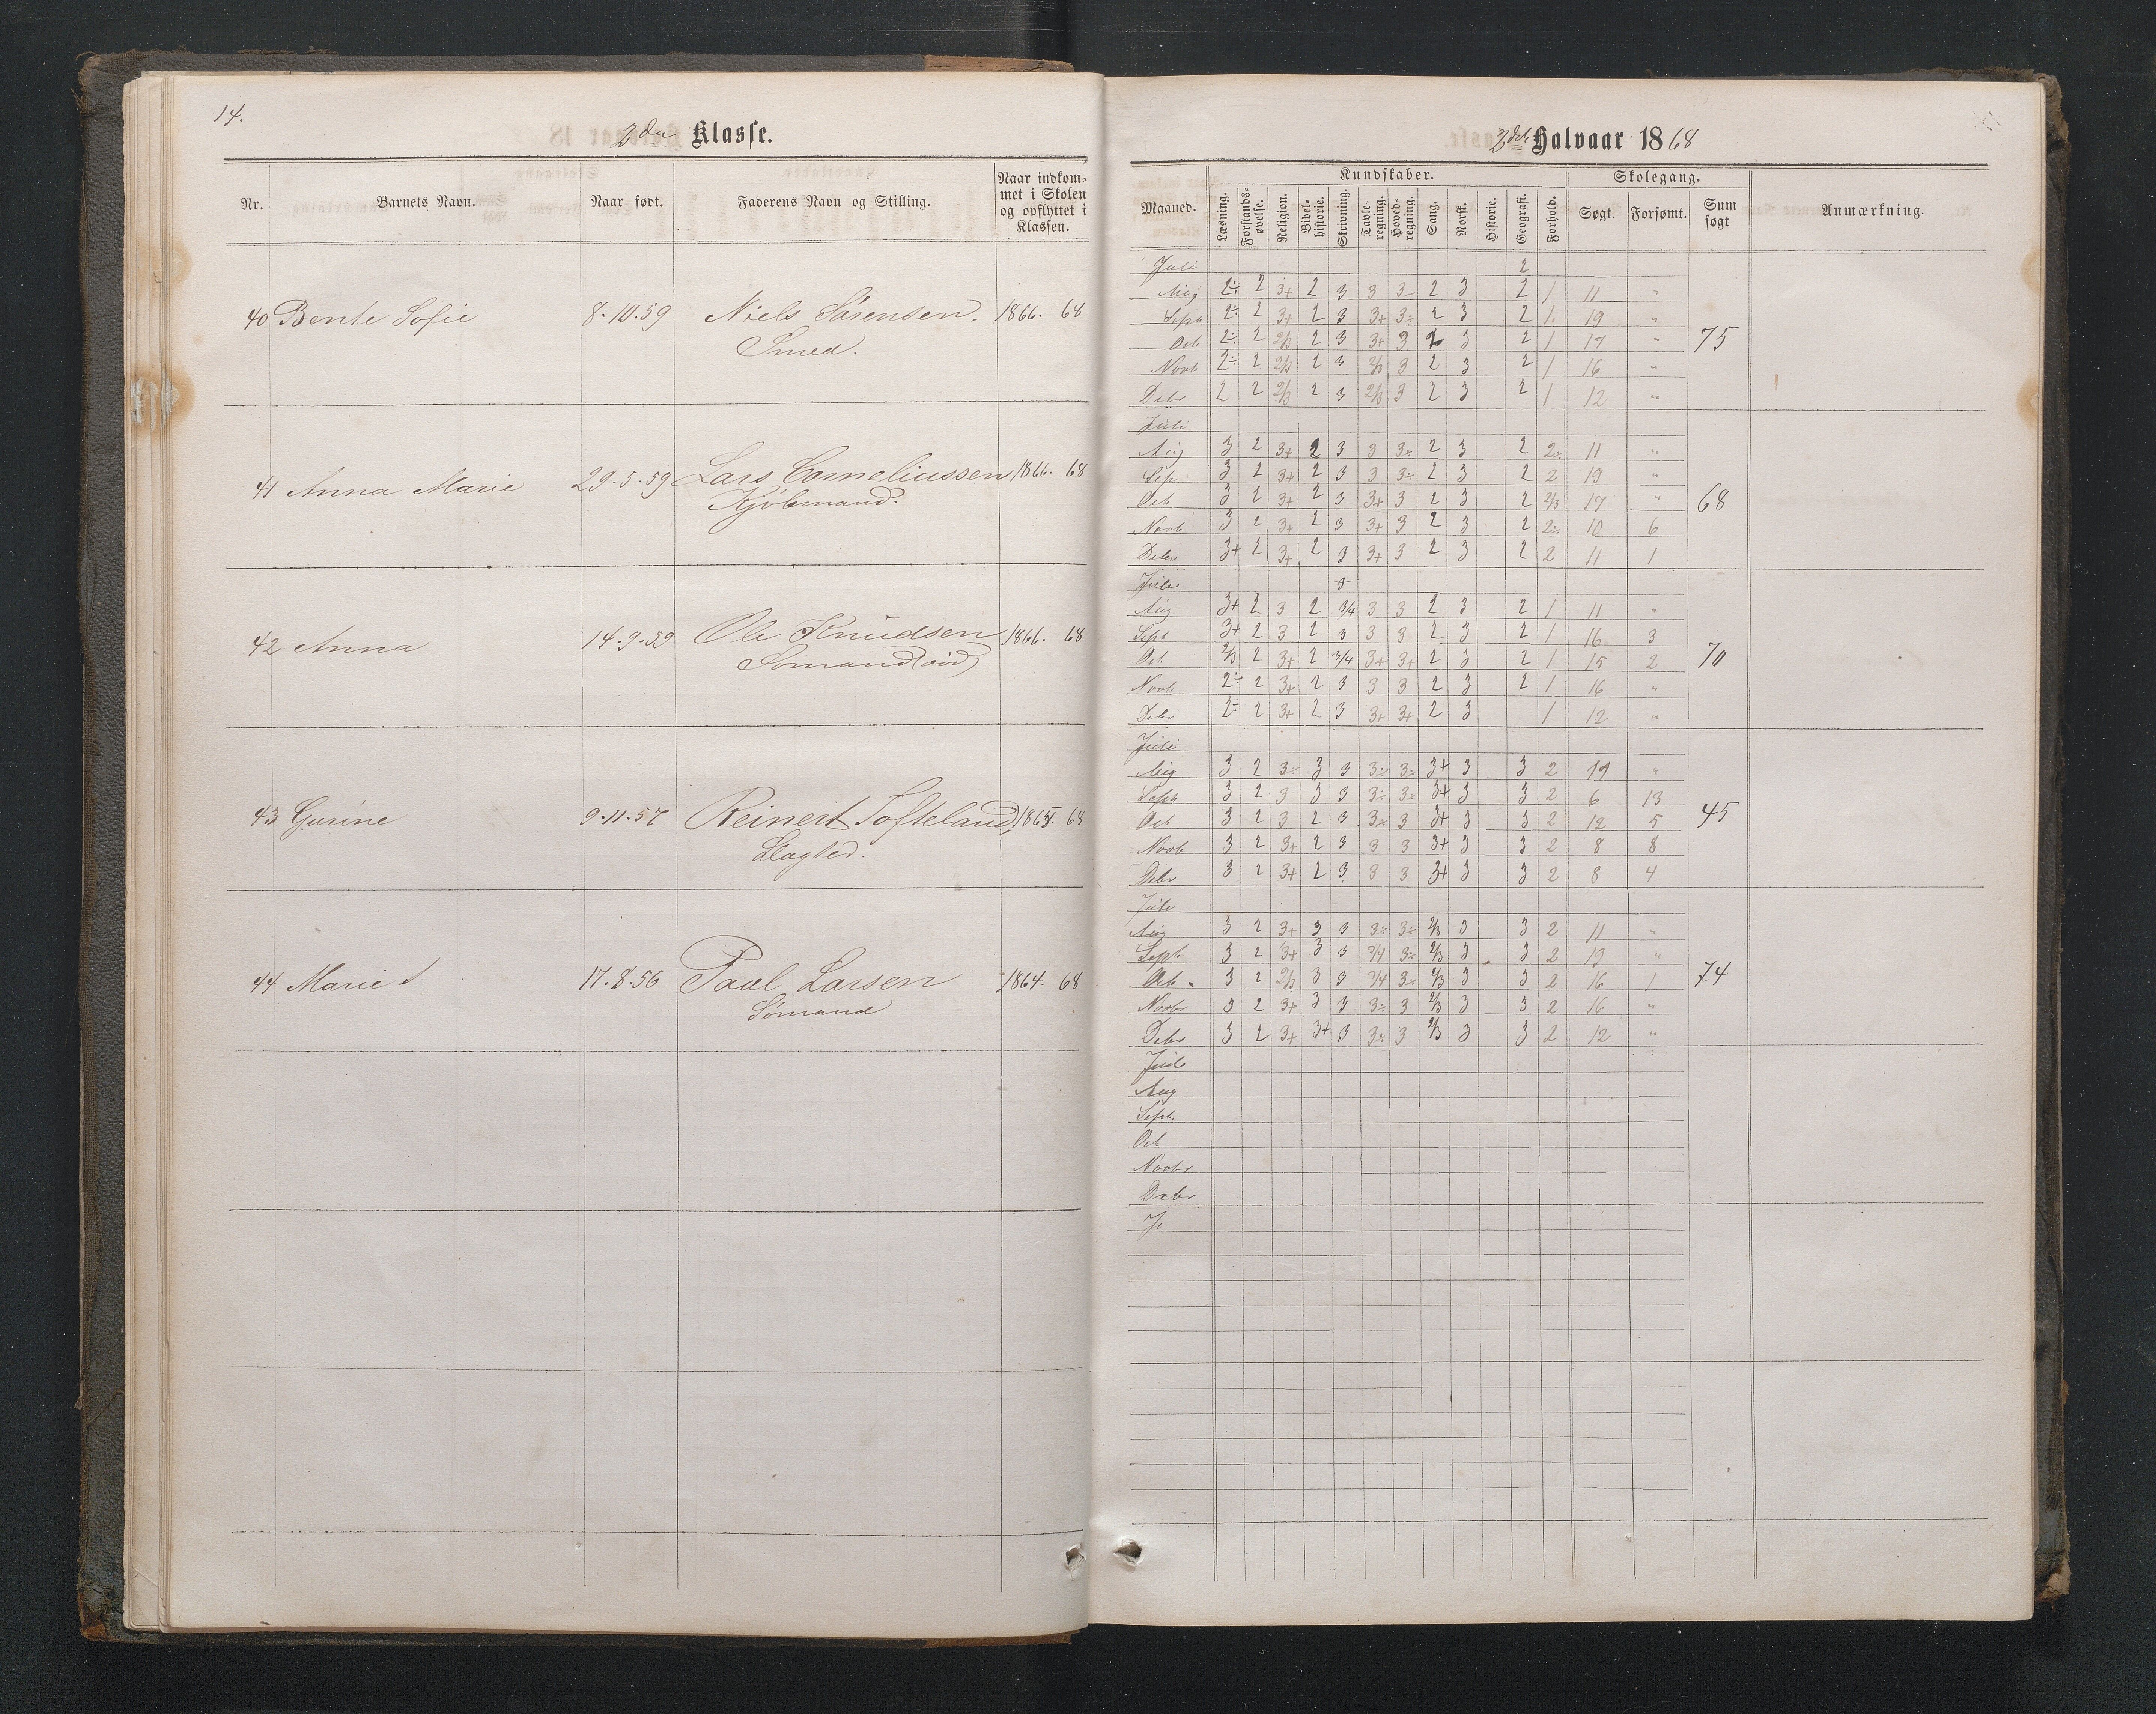 14.
2den Klasse.
Nr. Barnets Navn. Naar født. Faderens Navn og Stilling. Naar indkommet i Skolen og opflyttet i Klassen.
40 Bente Sofie 8.10.59 Niels Sørensen. 1866. 68
Smed.
41 Anna Marie 29.5.59 Lars Corneliussen 1866. 68
Kjøbmand.
42 Anna 14.9.59 Ole Knudsen 1866. 68
Sømand (død)
43 Gurine 9.11.57 Reinert Softeland 1865. 68
Slagter.
44 Marie 17.8.56 Paul Larsen 1864. 68
Sømand
2det Halvaar 1868
Kundskaber. Skolegang.
Maaned. Læsning. Forstandsøvelse. Religion. Bibelhistorie. Skrivning. Tavleregning. Hovedregning. Sang. Norsk. Historie. Geografi. Forhold. Søgt. Forsømt. Sum søgt Anmærkning.
Juli 2
Aug 2÷ 2 3+ 2 3 3 3÷ 2 3 2 1 11 "
Sept 2÷ 2 3+ 2 3 3+ 3÷ 2 3 2 1 19 "
Oct 2÷ 2 2/3 2 3 3+ 3 2 3 2 1 17 " 75
Novb 2÷ 2 2/3 2 3 2/3 3 2 3 2 1 16 "
Debr 2 2 2/3 2 3 2/3 3 2 3 2 1 12 "
Juli
Aug 3 2 3+ 2 3 3 3÷ 2 3 2 2÷ 11 "
Sep 3 2 3+ 2 3 3 3÷ 2 3 2 2 19 "
Oct 3 2 3+ 2 3 3+ 3 2 3 2 2/3 17 " 68
Novb 3 2 3+ 2 3 3+ 3 2 3 2 2÷ 10 6
Debr 3+ 2 3+ 2 3 3+ 3 2 3 2 2 11 1
Juli
Aug 3+ 2 3 2 3/4 3 3 2 3 2 1 11 "
Sept 3+ 2 3 2 3 3 3 2 3 2 1 16 3
Oct 2/3 2 3+ 2 3/4 3+ 3+ 2 3 2 1 15 2 70
Novb 2÷ 2 3+ 2 3 3 3 2 3 2 1 16 "
Debr 2÷ 2 3+ 2 3 3+ 3+ 2 3 1 12 "
Juli
Aug 3 2 3÷ 3 3 3÷ 3÷ 3+ 3 3 2 19 "
Sept 3 2 3 3 3 3÷ 3÷ 3+ 3 3 2 6 13
Oct 3 2 3 2 3 3÷ 3 3+ 3 3 2 12 5 45
Novb 3 2 3+ 2 3 3 3 3+ 3 3 2 8 8
Debr 3 2 3+ 2 3 3 3 3+ 3 3 2 8 4
Juli
Aug 3 2 3+ 3 3 3÷ 3÷ 2/3 3 3 2 11 "
Sept 3 2 3+ 3 3 3/4 3÷ 2/3 3 3 2 19 "
Oct 3 2 2/3 3 3 3/4 3÷ 2/3 3 3 2 16 1 74
Novbr 3 2 3+ 3 3 3÷ 3 2/3 3 3 2 16 "
Debr 3 2 3+ 3+ 3 3÷ 3 2/3 3 3 2 12 "
Juli
Aug
Sept.
Oct
Novbr
Debr